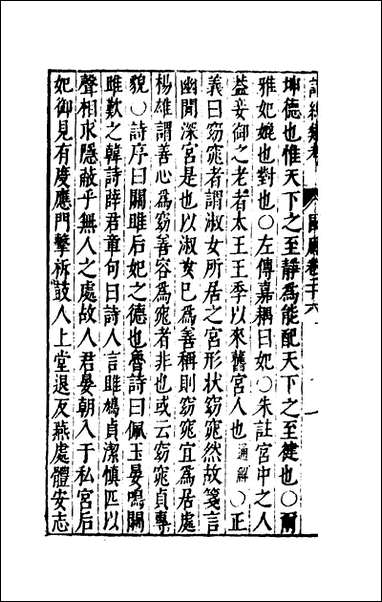 詩經類考 國風卷十六
坤德也惟天下之至靜爲能配天下之至健也○爾
雅妃媲也對也○左傳嘉耦曰妃○朱註宮中之人
葢妾御之老者太王王季以來舊宮人也通解○正
義曰窈窕者謂淑女所居之宮形狀窈窕然故箋言
幽閒深宮是也以淑女已爲善稱則窈窕宜爲居處
楊雄謂善心爲窈善容爲窕者非也或云窈窕貞專
貌○詩序曰關雎后妃之德也魯詩曰佩玉晏鳴關
雎歎之韓詩薛君章句曰詩人言雎鳩貞潔慎匹以
聲相求隱蔽乎無人之處故人君晏朝入于私宮后
妃御見有度應門擊柝鼓人上堂退反燕處體安志